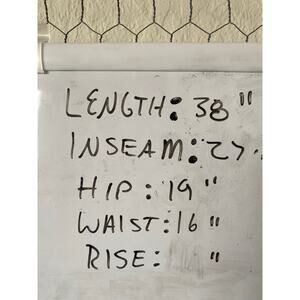 LENGTH: 38"
INSEAM: 27
HIP: 19"
WAIST: 16"
RISE: "